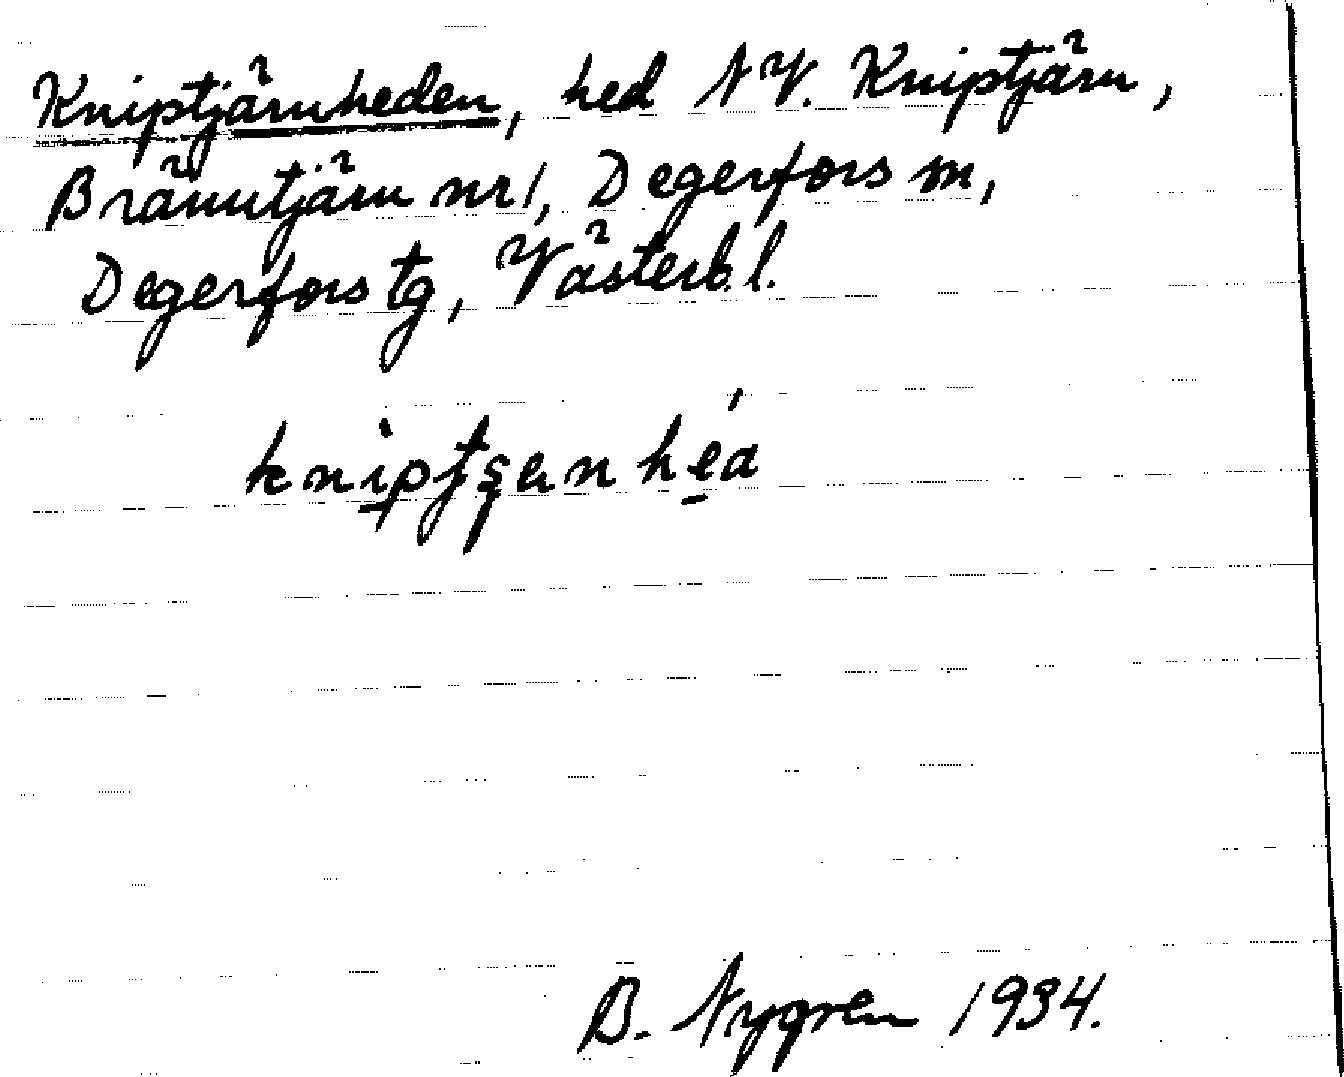 Kniptjärnheden, hed NV. Kniptjärn,
Bränntjärn nr 1, Degerfors sn,
Degerfors tg, Västerb. l.
B. Nygren 1934.